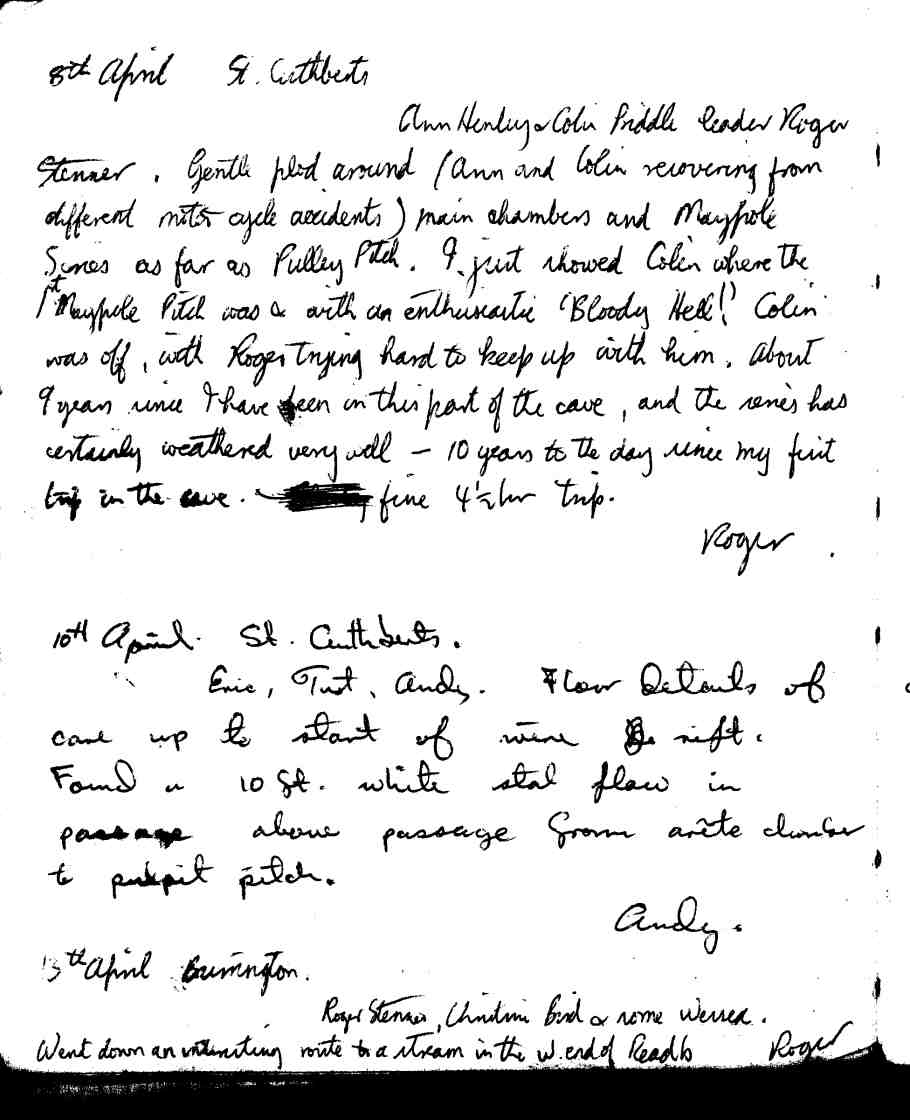 8th April St. Cuthberts
Ann Henley & Colin Priddle leader Roger
Stenner. Gentle plod around (Ann and Colin recovering from
different motor cycle accidents) main chambers and Maypole
Series as far as Pulley Pitch. I just showed Colin where the
1st Maypole Pitch was & with an enthusiastic 'Bloody Hell!' Colin
was off, with Roger trying hard to keep up with him. About
9 years since I have been in this part of the cave, and the series has
certainly weathered very well – 10 years to the day since my first
trip in the cave. fine 4½ hr trip.
Roger
10TH April. St. Cuthberts.
Eric, Andy. Flow Details of
cave up to start of wire rift.
Found a 10 ft. white stal flow in
passage above passage from arête chamber
to pulpit pitch.
Andy.
13th April Burrington.
Roger Stenner, Christine Bird & some Wessex.
Went down an interesting route to a stream in the W. end of Readb
Roger